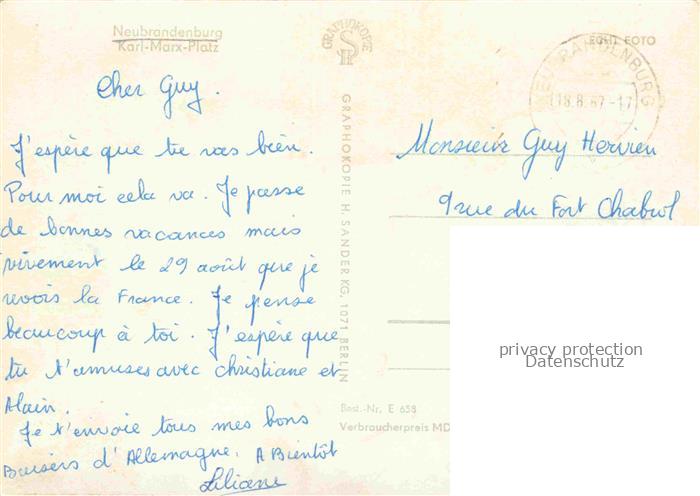 Neubrandenburg
Karl-Marx-Platz
Cher Guy.
J'espère que tu vas bien.
Pour moi cela va. Je passe
de bonnes vacances mais
vivement le 29 août que je
revois la France. Je pense
beaucoup à toi. J'espère que
tu t'amuses avec christiane et
Alain.
Je t'envoie tous mes bons
Baisers d'Allemagne. A Bientôt
Liliane
GRAPHOKOPIE
GRAPHOKOPIE H. SANDER KG, 1071 BERLIN
Best.-Nr. E 658
Verbraucherpreis MD
ECHT FOTO
NEUBRANDENBURG
18.8.67-17
Monsieur Guy Hervieu
9 rue du Fort Chabrol
privacy protection
Datenschutz